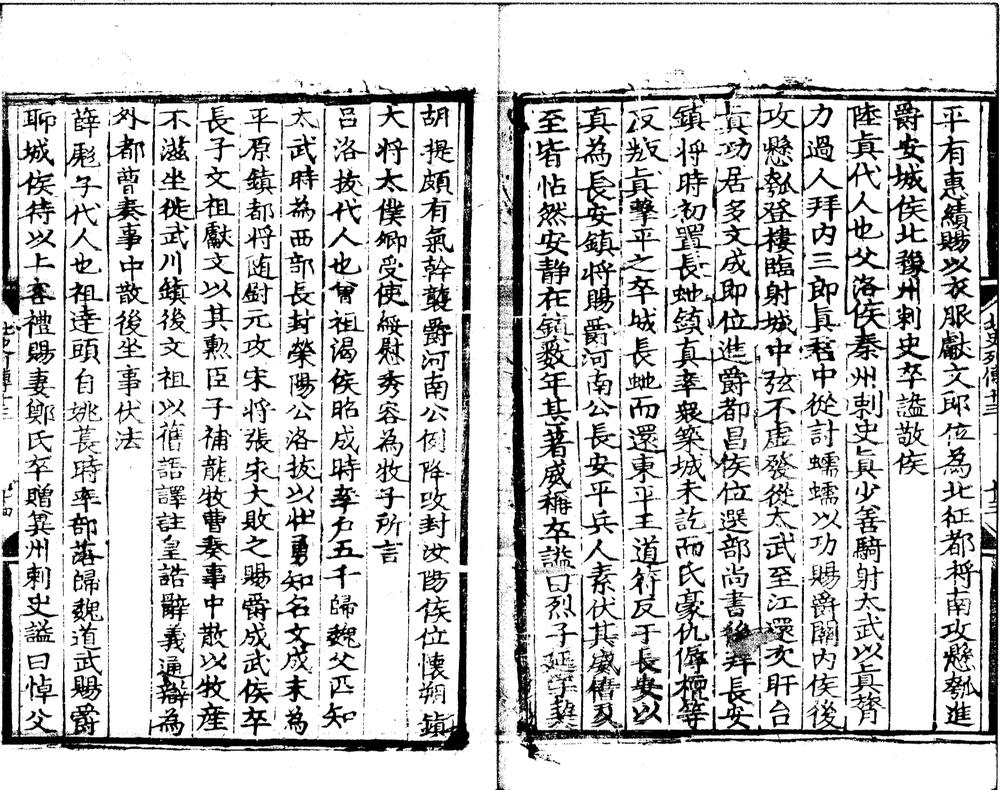 平有惠績賜以衣服獻文即位為北征都将南攻懸瓠進
爵安城侯北豫州刺史卒謚敬侯
陸真代人也父洛侯秦州刺史真少善騎射太武以真膂
力過人拜内三郎真君中從討蠕蠕以功賜爵關内侯後
攻懸瓠登樓臨射城中弦不虚發從太武至江還攻盱台
真功居多文成即位進爵都昌侯位選部尚書後拜長安
鎮将時初置長虵鎮真率衆築城未訖而氐豪仇傉檀等
反叛真擊平之卒城長虵而還東平王道符反于長安以
真為長安鎮将賜爵河南公長安平兵人素伏其威信及
至皆怗然安静在鎮数年甚著威稱卒謚曰烈子延字契
北史列傳十三 十三
胡提頗有氣幹襲爵河南公例降改封汝陽侯位懷朔鎮
大将太僕卿受使綏慰秀容為牧子所言
吕洛拔代人也曾祖渴侯昭成時率户五千歸魏父匹知
太武時為西部長封滎陽公洛拔以壮勇知名文成末為
平原鎮都将随尉元攻宋将張永大敗之賜爵成武侯卒
長子文祖獻文以其勲臣子補龍牧曹奏事中散以牧産
不滋坐徙武川鎮後文祖以舊語譯註皇誥辭義通辯為
外都曹奏事中散後坐事伏法
薛彪子代人也祖達頭自姚萇時率部落歸魏道武賜爵
聊城侯待以上客禮賜妻鄭氏卒贈冀州刺史謚曰悼父